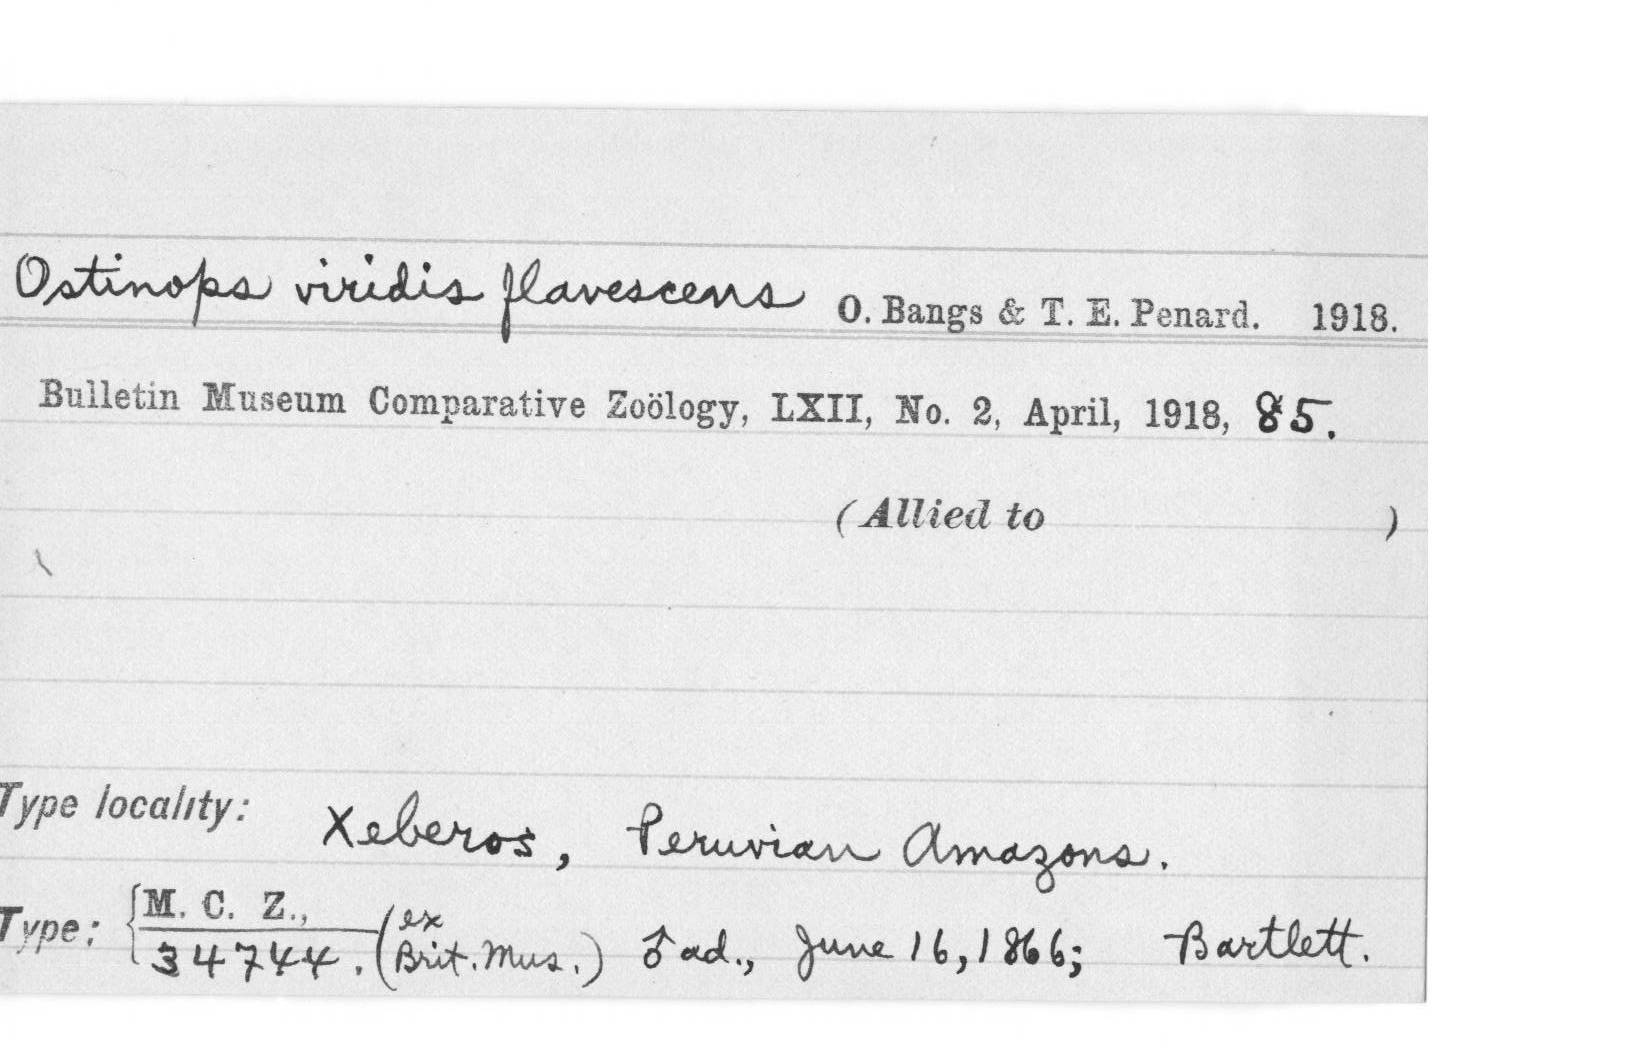 Ostinops viridis flavescens O. Bangs & T. E. Penard. 1918.
Bulletin Museum Comparative Zoölogy, LXII, No. 2, April, 1918, 85.
(Allied to )
Type locality: Xeberos, Peruvian Amazons.
Type: { M. C. Z., 34744. (ex Brit. Mus.) ♂ ad., June 16, 1866; Bartlett.